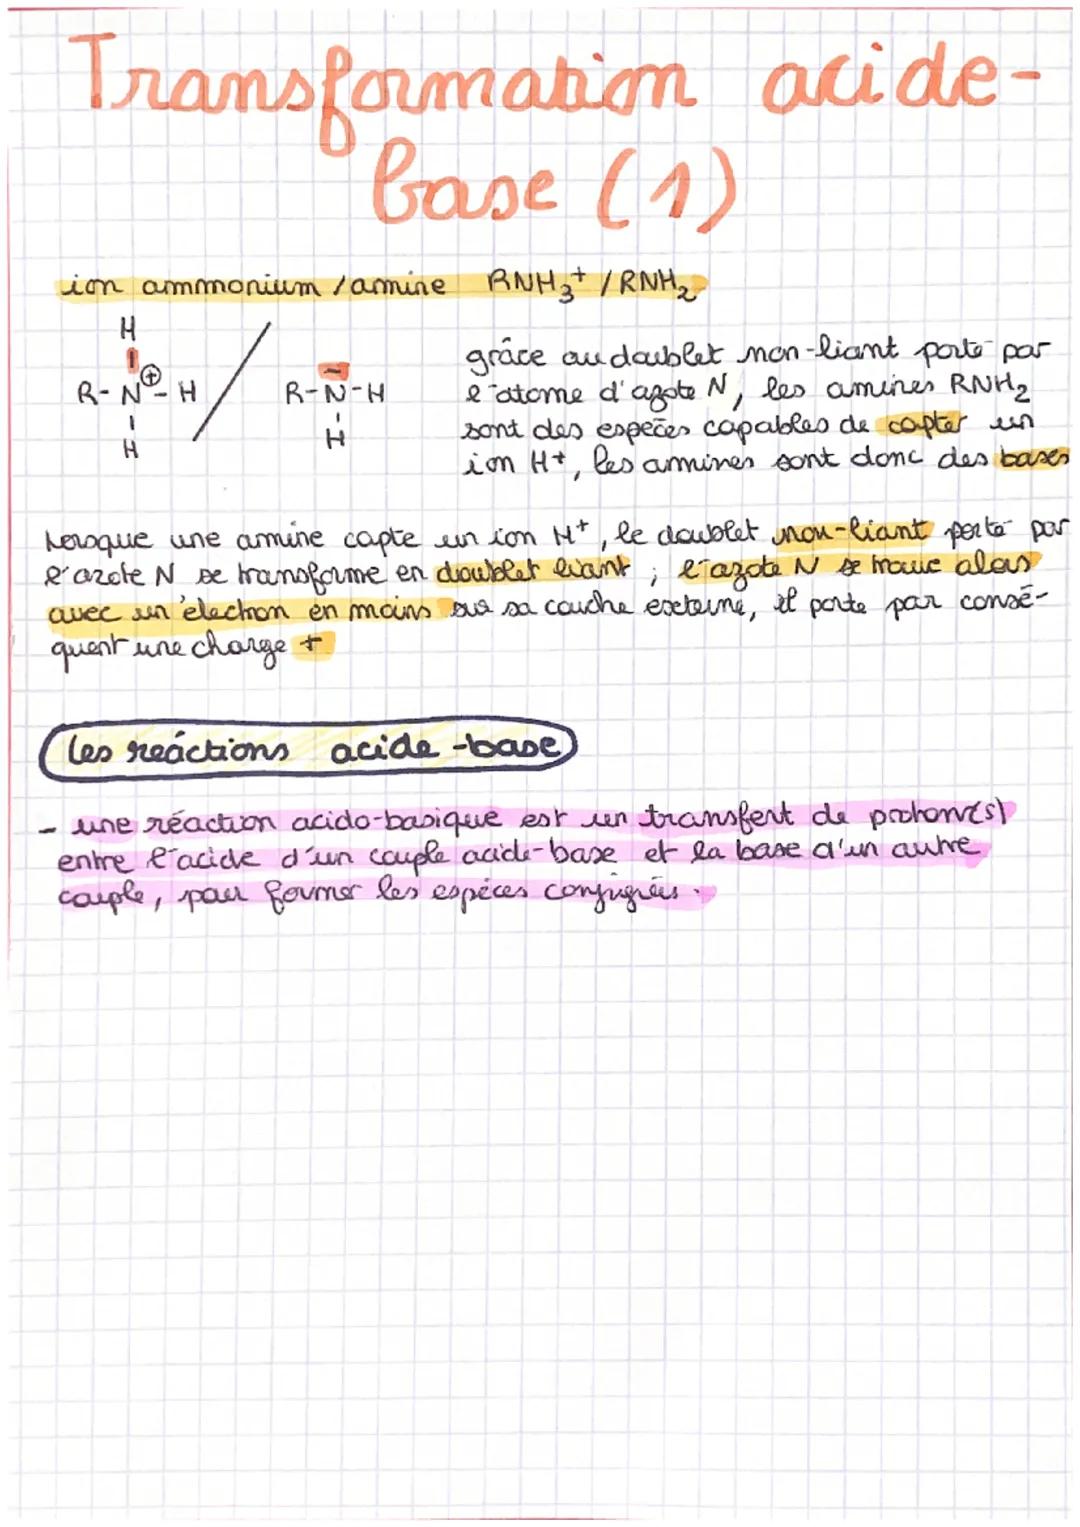 Transformation acide-
base (1)
ion ammonium / amine RNH₃⁺ / RNH₂
H
R-N⊕-H
H
R-N-H
H
grâce au doublet non-liant porté par
l'atome d'azote N, les amines RNH₂
sont des espèces capables de capter un
ion H+, les amines sont donc des bases
Lorsque une amine capte un ion H⁺, le doublet non-liant porté par
l'azote N se transforme en doublet liant ; l'azote N se trouve alors
avec un électron en moins sur sa couche externe, il porte par consé-
quent une charge +
les réactions acide-base
- une réaction acido-basique est un transfert de proton(s)
entre l'acide d'un couple acide-base et la base d'un autre
couple, pour former les espèces conjuguées.